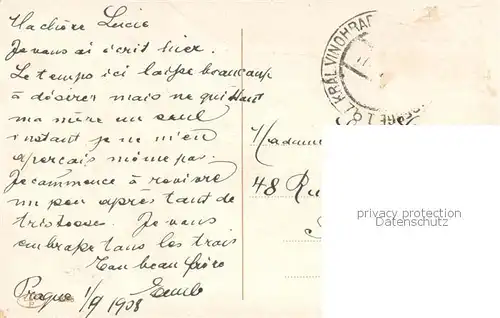 Ma chère Lucie
Je vous ai écrit hier.
Le temps ici laisse beaucoup
à désirer mais ne quittant
ma mère un seul
instant je ne m'en
aperçois même pas.
Je commence à revivre
un peu après tant de
tristesse. Je vous
embrasse tous les trois
Ton beau frère
Prague 1/9 1908 Emile
KRÁL. VINOHRAD
Madame
48 Ru
privacy protection
Datenschutz